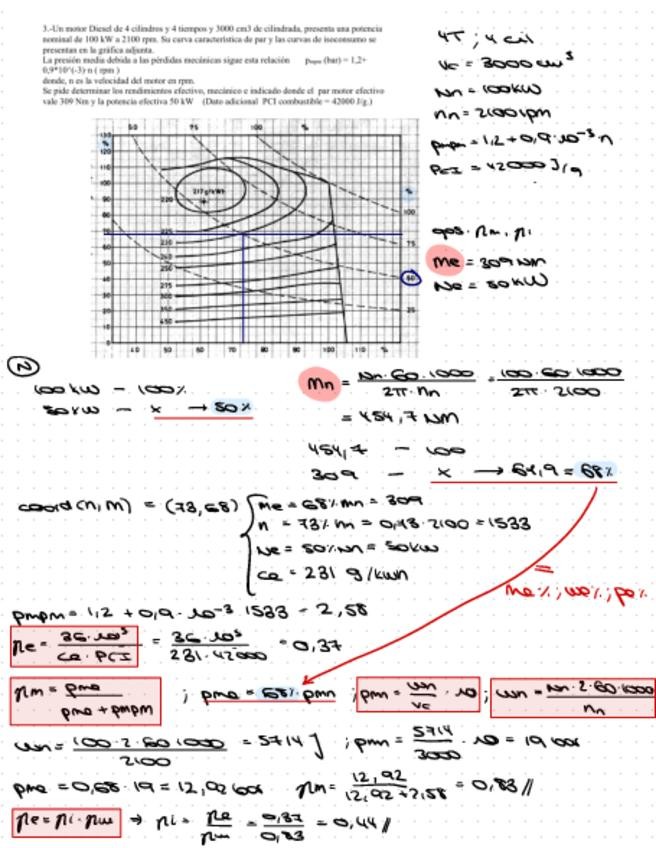 3.-Un motor Diesel de 4 cilindros y 4 tiempos y 3000 cm3 de cilindrada, presenta una potencia
nominal de 100 kW a 2100 rpm. Su curva característica de par y las curvas de isoconsumo se
presentan en la gráfica adjunta.
La presión media debida a las pérdidas mecánicas sigue esta relación pmpm (bar) = 1,2+
0,9*10^(-3) n ( rpm )
donde, n es la velocidad del motor en rpm.
Se pide determinar los rendimientos efectivo, mecánico e indicado donde el par motor efectivo
vale 309 Nm y la potencia efectiva 50 kW (Dato adicional PCI combustible = 42000 J/g.)
4T ; 4 cil
Vc = 3000 cm³
Nn = 100kW
nn = 2100 rpm
pmpm = 1,2 + 0,9·10⁻³·n
PCI = 42000 J/g
ηm, ηi
Me = 309 Nm
Ne = 50kW
50 75 100 %
130
120
%
110
100
90
80
70
60
50
40
30
20
10
0
217 g/kWh
220
225
230
250
275
300
350
450
%
100
75
50
25
40 50 60 70 80 90 100 110 %
2
100 kW - 100%
50 kW - x → 50%
Mn = Nn·60·1000 / 2π·nn = 100·60·1000 / 2π·2100
= 454,7 Nm
454,7 - 100
309 - x → 67,9 = 68%
coord (n, m) = (73,68)
Me = 68% Mn = 309
n = 73% nn = 0,73·2100 = 1533
Ne = 50% Nn = 50kW
Ce = 231 g/kWh
= Me%; We%; Pe%
pmpm = 1,2 + 0,9·10⁻³·1533 = 2,58
ηe = 36·10⁵ / Ce·PCI = 36·10⁵ / 231·42000 = 0,37
ηm = pme / pme + pmpm ; pme = 68% pmn ; pmn = Wn / Vc · 10 ; Wn = Nn·2·60·1000 / nn
Wn = 100·2·60·1000 / 2100 = 5714 J ; pmn = 5714 / 3000 · 10 = 19 bar
pme = 0,68·19 = 12,92 bar ηm = 12,92 / 12,92 + 2,58 = 0,83 //
ηe = ηi·ηm → ηi = ηe / ηm = 0,37 / 0,83 = 0,44 //